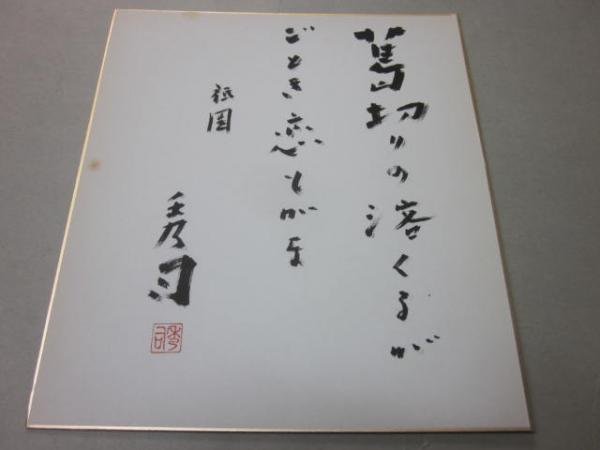 葛切りの溶くるが
ごとき恋もがな
祇園
秀司
秀司